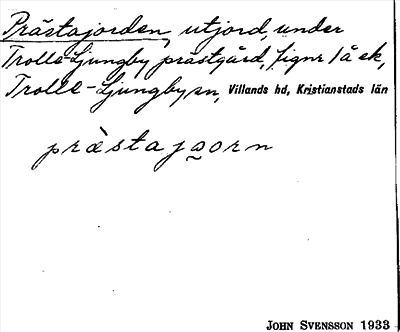 Prästajorden, utjord, under
Trolle-Ljungby prästgård, fignr 1 å ek,
Trolle-Ljungby sn, Villands hd, Kristianstads län
prästajaorn
JOHN SVENSSON 1933